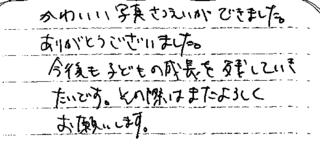 かわいい写真さつえいができました。
ありがとうございました。
今後も子どもの成長を残していき
たいです。その際はまたよろしく
お願いします。